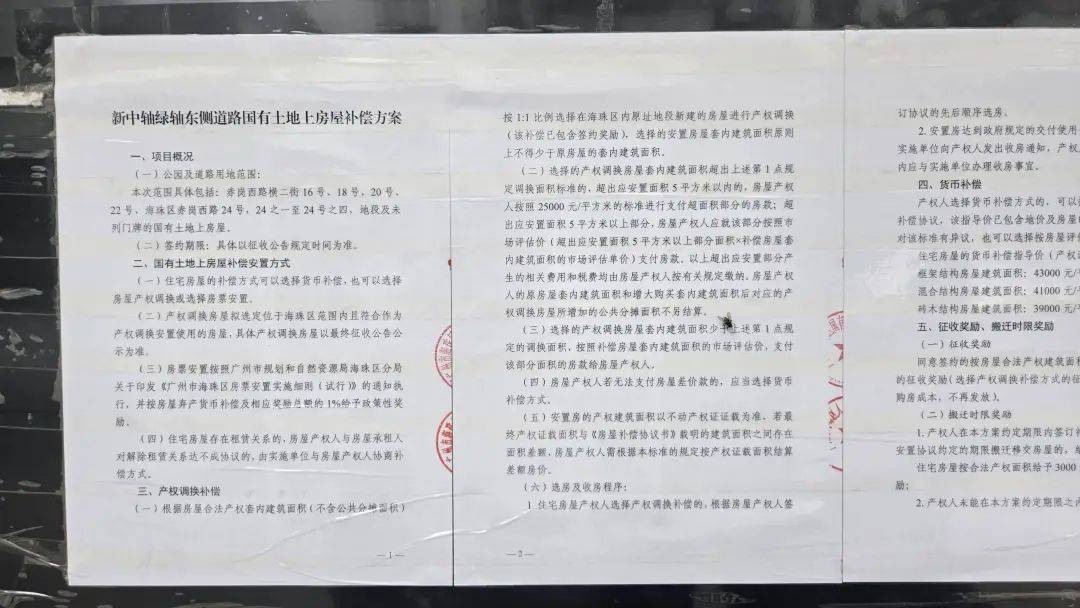 新中轴绿轴东侧道路国有土地上房屋补偿方案
一、项目概况
（一）公园及道路用地范围：
本次范围具体包括：赤岗西路横二街16号、18号、20号、
22号、海珠区赤岗西路24号，24之一至24号之四、地段及未
列门牌的国有土地上房屋。
（二）签约期限：具体以征收公告规定时间为准。
二、国有土地上房屋补偿安置方式
（一）住宅房屋的补偿方式可以选择货币补偿，也可以选择
房屋产权调换或选择房票安置。
（二）产权调换房屋拟选定位于海珠区范围内且符合作为
产权调换安置使用的房屋，具体产权调换房屋以最终征收公告公
示为准。
（三）房票安置按照广州市规划和自然资源局海珠区分局
关于印发《广州市海珠区房票安置实施细则（试行）》的通知执
行，并按房屋弃产货币补偿及相应奖励总额的1%给予政策性奖
励。
（四）住宅房屋存在租赁关系的，房屋产权人与房屋承租人
对解除租赁关系达不成协议的，由实施单位与房屋产权人协商补
偿方式。
三、产权调换补偿
（一）根据房屋合法产权套内建筑面积（不含公共分摊面积）
—1—
按1:1比例选择在海珠区内原址地段新建的房屋进行产权调换
（该补偿已包含签约奖励）。选择的安置房屋套内建筑面积原则
上不得少于原房屋的套内建筑面积。
（二）选择的产权调换房屋套内建筑面积超出上述第1点规
定调换面积标准的，超出应安置面积5平方米以内的，房屋产权
人按照25000元/平方米的标准进行支付超面积部分的房款；超
出应安置面积5平方米以上部分，房屋产权人应就该部分按照市
场评估价（超出应安置面积5平方米以上部分面积×补偿房屋套
内建筑面积的市场评估单价）支付房款。以上超出应安置部分产
生的相关费用和税费均由房屋产权人按有关规定缴纳。房屋产权
人的原房屋套内建筑面积和增大购买套内建筑面积后对应的产
权调换房屋所增加的公共分摊面积不另结算。
（三）选择的产权调换房屋套内建筑面积少于上述第1点规
定的调换面积，按照补偿房屋套内建筑面积的市场评估价，支付
该部分面积的房款给房屋产权人。
（四）房屋产权人若无法支付房屋差价款的，应当选择货币
补偿方式。
（五）安置房的产权建筑面积以不动产权证证载为准。若最
终产权证载面积与《房屋补偿协议书》载明的建筑面积之间存在
面积差额，房屋产权人需根据本标准的规定按产权证载面积结算
差额房价。
（六）选房及收房程序：
1.住宅房屋产权人选择产权调换补偿的，根据房屋产权人签
—2—
订协议的先后顺序选房。
2.安置房达到政府规定的交付使用
实施单位向产权人发出收房通知，产权
内应与实施单位办理收房事宜。
四、货币补偿
产权人选择货币补偿方式的，可以
补偿协议，该指导价已包含地价及房屋
对该标准有异议，也可以选择按房屋评
住宅房屋的货币补偿指导价（产权
框架结构房屋建筑面积：43000元/
混合结构房屋建筑面积：41000元/
砖木结构房屋建筑面积：39000元/
五、征收奖励、搬迁时限奖励
（一）征收奖励
同意签约的按房屋合法产权建筑面积
的征收奖励（选择产权调换补偿方式的征
购房成本，不再发放）。
（二）搬迁时限奖励
1.产权人在本方案约定期限内签订补
安置协议约定的期限搬迁移交房屋的，
住宅房屋按合法产权面积给予3000
励；
2.产权人未能在本方案约定期限之内